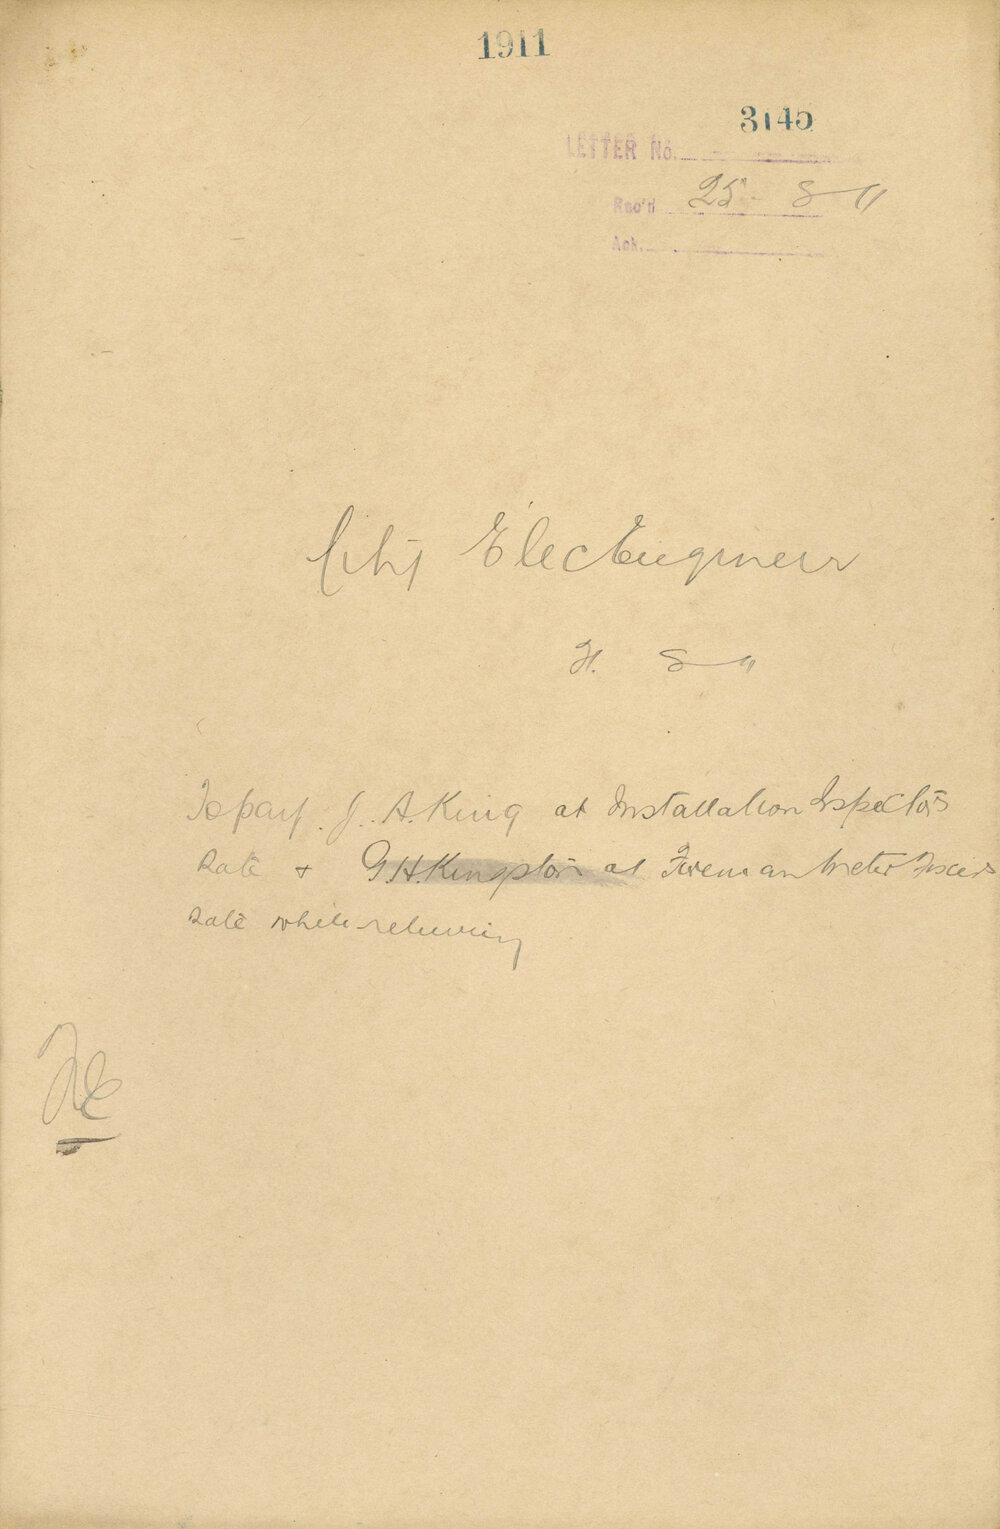 1911
3145
LETTER No.
Rec'd 25 - 8 - 11
Ack.
City Elec Engineer
8 - 11
To pay J. A. King at Installation Inspectors
rate + G. H. Kingston at Foreman Meter Fixers
rate while relieving